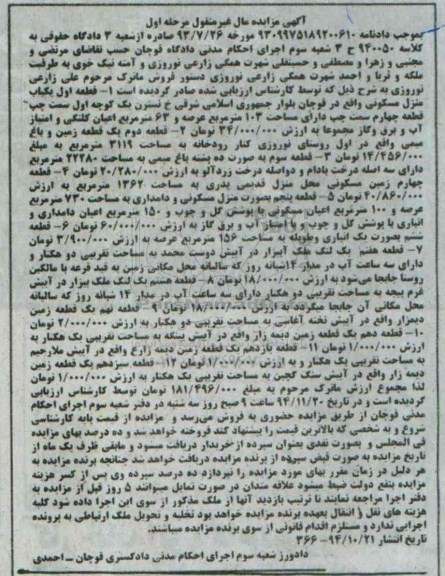 آگهی مزایده مال غیرمنقول مرحله اول
بموجب دادنامه ۹۳۰۹۹۷۵۱۸۹۲۰۰۶۱۰ مورخه ۹۳/۷/۲۶ صادره ازشعبه ۳ دادگاه حقوقی به
کلاسه ۹۴۰۰۵۰ ح ۳ شعبه سوم اجرای احکام مدنی دادگاه قوچان حسب تقاضای مرتضی و
مجتبی و زهرا و مصطفی و حسنقلی شهرت همگی زارعی نوروزی و آمنه نیک خوی به طرفیت
ملکه و ثریا و احمد شهرت همگی زارعی نوروزی دستور فروش ماترک مرحوم علی زارعی
نوروزی به شرح ذیل که توسط کارشناس ارزیابی شده صادر گردیده است ۱- قطعه اول یکباب
منزل مسکونی واقع در قوچان بلوار جمهوری اسلامی شرقی خ نسترن یک کوچه اول سمت چپ
قطعه چهارم سمت چپ دارای مساحت ۱۰۳ مترمربع عرصه و ۶۳ مترمربع اعیان کلنگی و امتیاز
آب و برق وگاز مجموعا به ارزش ۳۴/۰۰۰/۰۰۰ تومان ۲- قطعه دوم یک قطعه زمین و باغ
میمی واقع در اول روستای نوروزی کنار رودخانه به مساحت ۳۱۱۹ مترمربع به مبلغ
۱۴/۴۵۶/۰۰۰ تومان ۳- قطعه سوم به صورت ده پشته باغ میمی به مساحت ۲۲۲۸۰ مترمربع
دارای سه اصله درخت بادام و دواصله درخت زردآلو به ارزش ۲۰/۲۸۰/۰۰۰ تومان ۴- قطعه
چهارم زمین مسکونی محل منزل قدیمی پدری به مساحت ۱۳۶۲ مترمربع به ارزش
۴۰/۸۶۰/۰۰۰ تومان ۵- قطعه پنجم بصورت منزل مسکونی و دامداری به مساحت ۷۳۰ مترمربع
عرصه و ۱۰۰ مترمربع اعیان مسکونی با پوشش گل و چوب و ۱۵۰ مترمربع اعیان دامداری و
انباری با پوشش گل و چوب و با امتیاز آب و برق گاز به ارزش ۶۰/۰۰۰/۰۰۰ تومان ۶- قطعه
ششم بصورت یک انباری وطویله به مساحت ۱۵۶ مترمربع عرصه به ارزش ۳/۹۰۰/۰۰۰ تومان
۷- قطعه هفتم یک لنگ ملک آبزار در آبیش دوست محمد به مساحت تقریبی دو هکتار و
دارای سه ساعت آب در مدار ۱۴شبانه روز که سالیانه محل مکانی زمین به قید قرعه با مالکین
روستا جابجا می‌شود به ارزش ۱۸/۰۰۰/۰۰۰ تومان ۸- قطعه هشتم یک لنگ ملک بیزار در آبیش
غرم بیجه به مساحت تقریبی دو هکتار دارای سه ساعت آب در مدار ۱۴ شبانه روز که سالیانه
محل مکانی آن جابجا میگردد به ارزش ۱۸/۰۰۰/۰۰۰ تومان ۹- قطعه نهم یک قطعه زمین
دیمزار واقع در آبیش تخته آغاسی به مساحت تقریبی دو هکتار به ارزش ۲/۰۰۰/۰۰۰ تومان
۱۰- قطعه دهم یک قطعه زمین دیمه زار واقع در آبیش بینکه به مساحت تقریبی یک هکتار به
ارزش ۱/۰۰۰/۰۰۰ تومان ۱۱- قطعه یازدهم یک قطعه زمین دیمه زارع واقع در آبیش ملارحیم
به مساحت تقریبی یک هکتار و به ارزش ۱/۰۰۰/۰۰۰ تومان ۱۲- قطعه سیزدهم یک قطعه زمین
دیمه زار واقع در آبیش سنگ گچین به مساحت تقریبی یک هکتار به ارزش ۱/۰۰۰/۰۰۰ تومان
لذا مجموع ارزش ماترک مرحوم به مبلغ ۱۸۱/۴۹۶/۰۰۰ تومان توسط کارشناس ارزیابی
گردیده است و در تاریخ ۹۴/۱۱/۲۰ ساعت ۹ صبح روز سه شنبه در دفتر شعبه سوم اجرای احکام
مدنی قوچان از طریق مزایده حضوری به فروش می‌رسد و مزایده از قیمت پایه کارشناسی
شروع و به شخصی که بالاترین قیمت را پیشنهاد کند فروخته خواهد شد و ده درصد بهای مزایده
فی المجلس و بصورت نقدی بعنوان سپرده ازخریدار دریافت میشود و مابقی ظرف یک ماه از
تاریخ مزایده به صورت فیش سپرده از برنده مزایده دریافت خواهد شد چنانچه برنده مزایده به
هر دلیل در زمان مقرر بهای مورد مزایده را نپردازد ده درصد سپرده وی پس از کسر هزینه
مزایده بنفع دولت ضبط میشود علاقه مندان در صورت تمایل میتوانند ۵ روز قبل از مزایده به
دفتر اجرا مراجعه نمایند تا ترتیب بازدید آنها از ملک مذکور از سوی این اجرا داده شود کلیه
هزینه های نقل و انتقال بعهده برنده مزایده خواهد بود تخلیه و تحویل ملک ارتباطی به پرونده
اجرایی ندارد و مستلزم اقدام قانونی از سوی برنده مزایده میباشند.
تاریخ انتشار ۹۴/۱۰/۲۱- ۳۶۶
دادورز شعبه سوم اجرای احکام مدنی دادگستری قوچان – احمدی